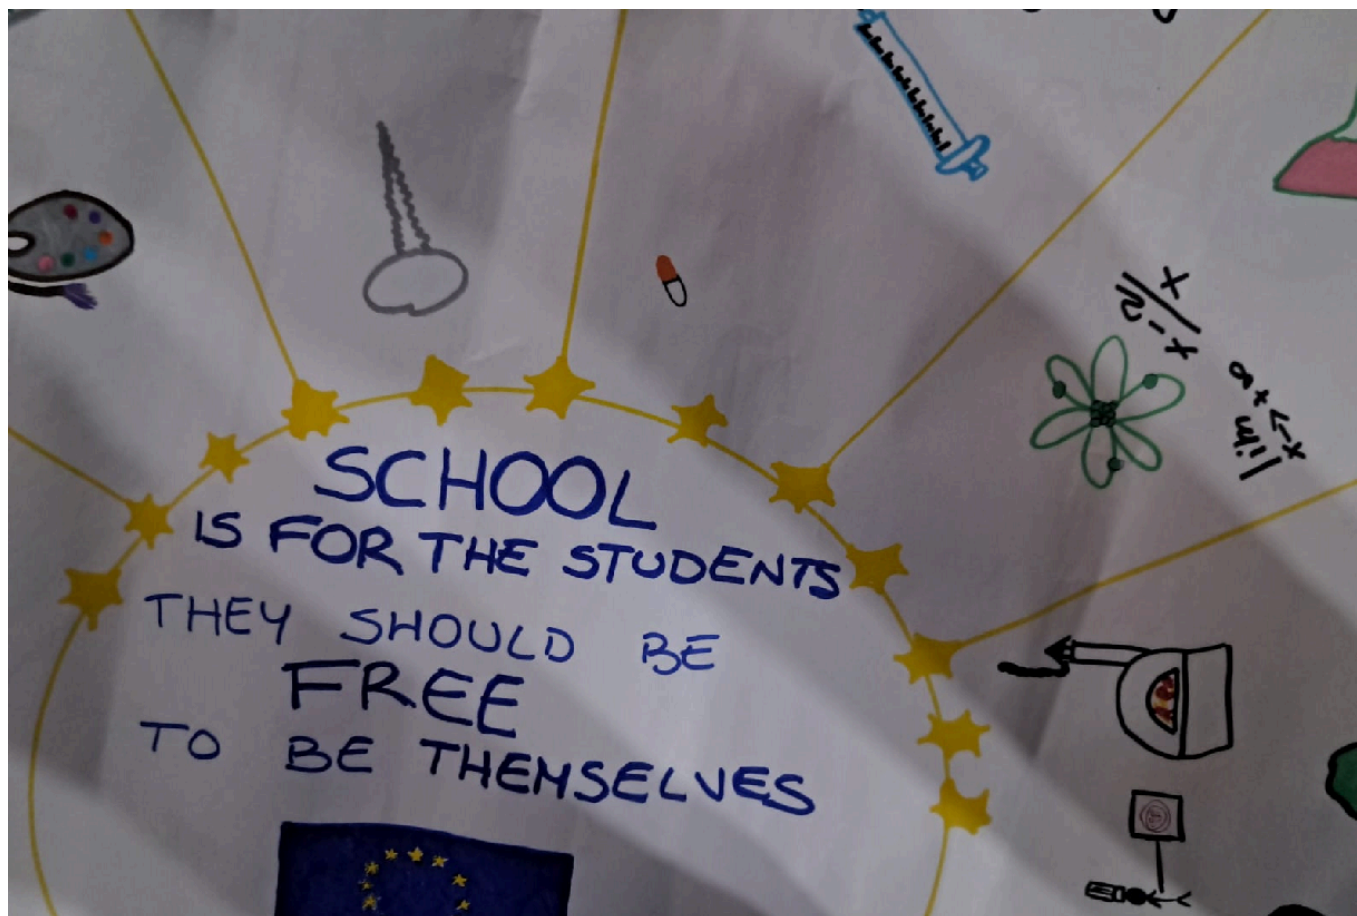 SCHOOL
IS FOR THE STUDENTS
THEY SHOULD BE
FREE
TO BE THEMSELVES
lim